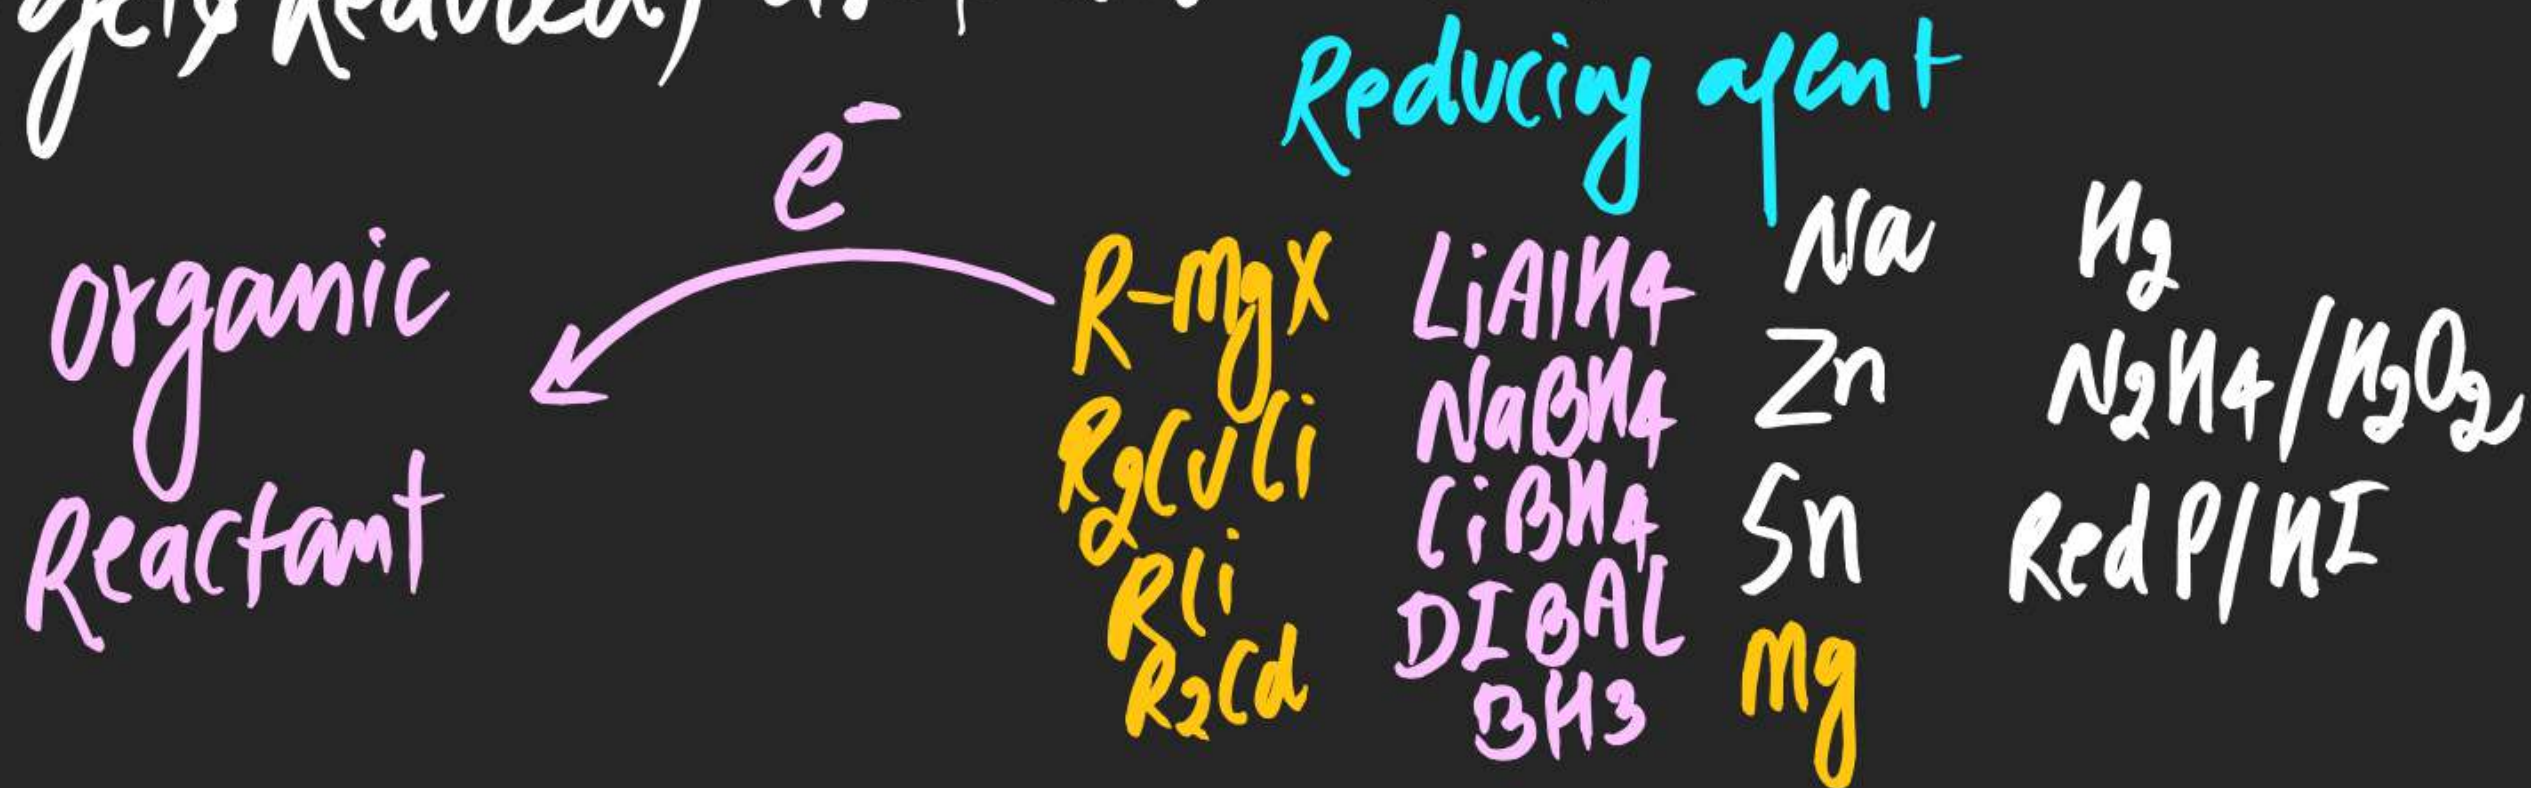 gets Reduced,
Reducing agent
e⁻
organic
Reactant
R-MgX
R2CuLi
RLi
R2Cd
LiAlH4
NaBH4
LiBH4
DIBAL
BH3
Na
Zn
Sn
Mg
H2
N2H4/H2O2
Red P/HI